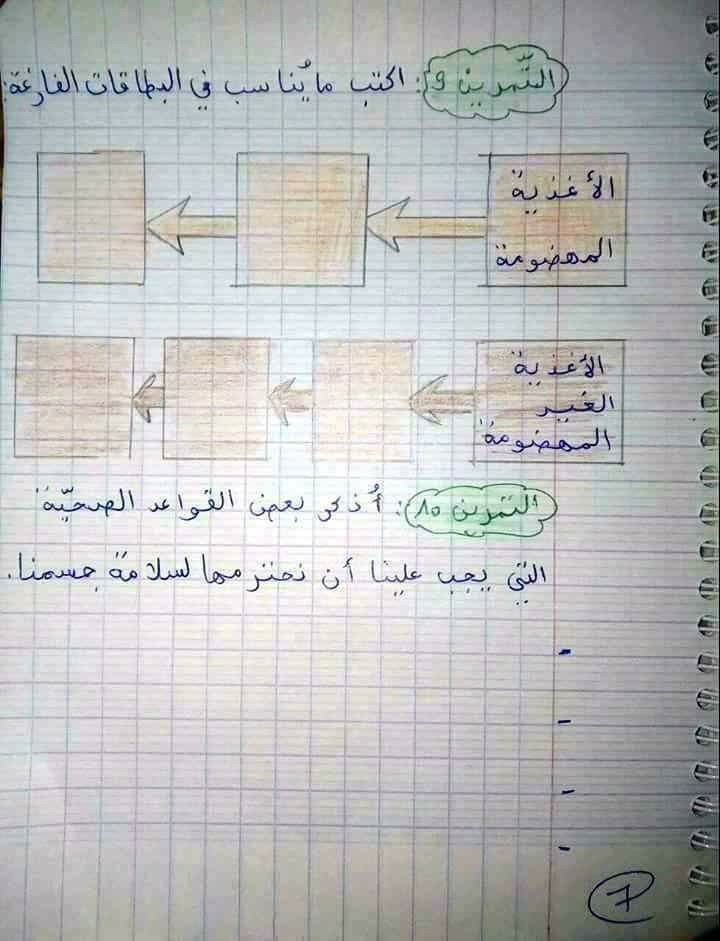 التّمرين 9: اكتب ما يُناسب في البطاقات الفارغة:
الأغذية
المهضومة
الأغذية
الغير
المهضومة
التمرين 10: أُذكر بعض القواعد الصحيّة
التي يجب علينا أن نحترمها لسلامة جسمنا.
-
-
-
-
7